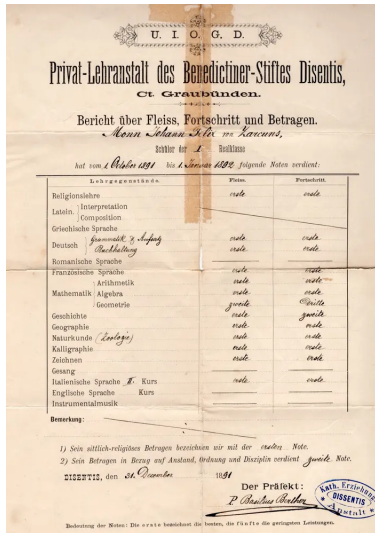 U. I. O. G. D.
Privat-Lehranstalt des Benedictiner-Stiftes Disentis,
Ct. Graubünden.
Bericht über Fleiss, Fortschritt und Betragen.
Monn Johann von
Schüler der 1. Realklasse
hat vom 1. October 1891 bis 1. Januar 1892 folgende Noten verdient:
Lehrgegenstände. Fleiss. Fortschritt.
Religionslehre erste erste
Latein. Interpretation
Composition
Griechische Sprache
Deutsch Grammatik & Aufsatz erste erste
Buchhaltung erste erste
Romanische Sprache
Französische Sprache erste erste
Mathematik Arithmetik erste erste
Algebra erste erste
Geometrie zweite Dritte
Geschichte erste zweite
Geographie erste erste
Naturkunde (Zoologie) erste erste
Kalligraphie erste erste
Zeichnen erste erste
Gesang
Italienische Sprache II. Kurs erste erste
Englische Sprache Kurs
Instrumentalmusik
Bemerkung:
1) Sein sittlich-religiöses Betragen bezeichnen wir mit der ersten Note.
2) Sein Betragen in Bezug auf Anstand, Ordnung und Disziplin verdient zweite Note.
DISENTIS, den 31. December 1891
Der Präfekt:
P. Basilius Berther
Kath. Erziehungs
DISENTIS
Anstalt
Bedeutung der Noten: Die erste bezeichnet die besten, die fünfte die geringsten Leistungen.